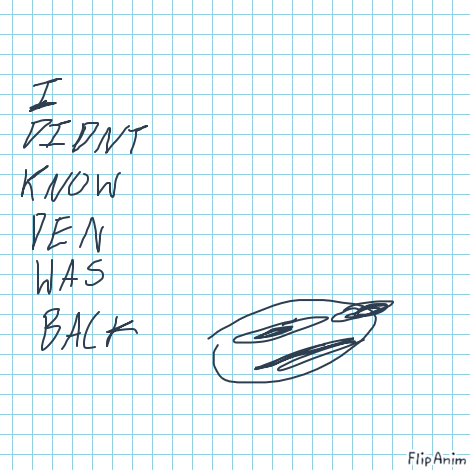 I
DIDNT
KNOW
DEN
WAS
BACK
FlipAnim